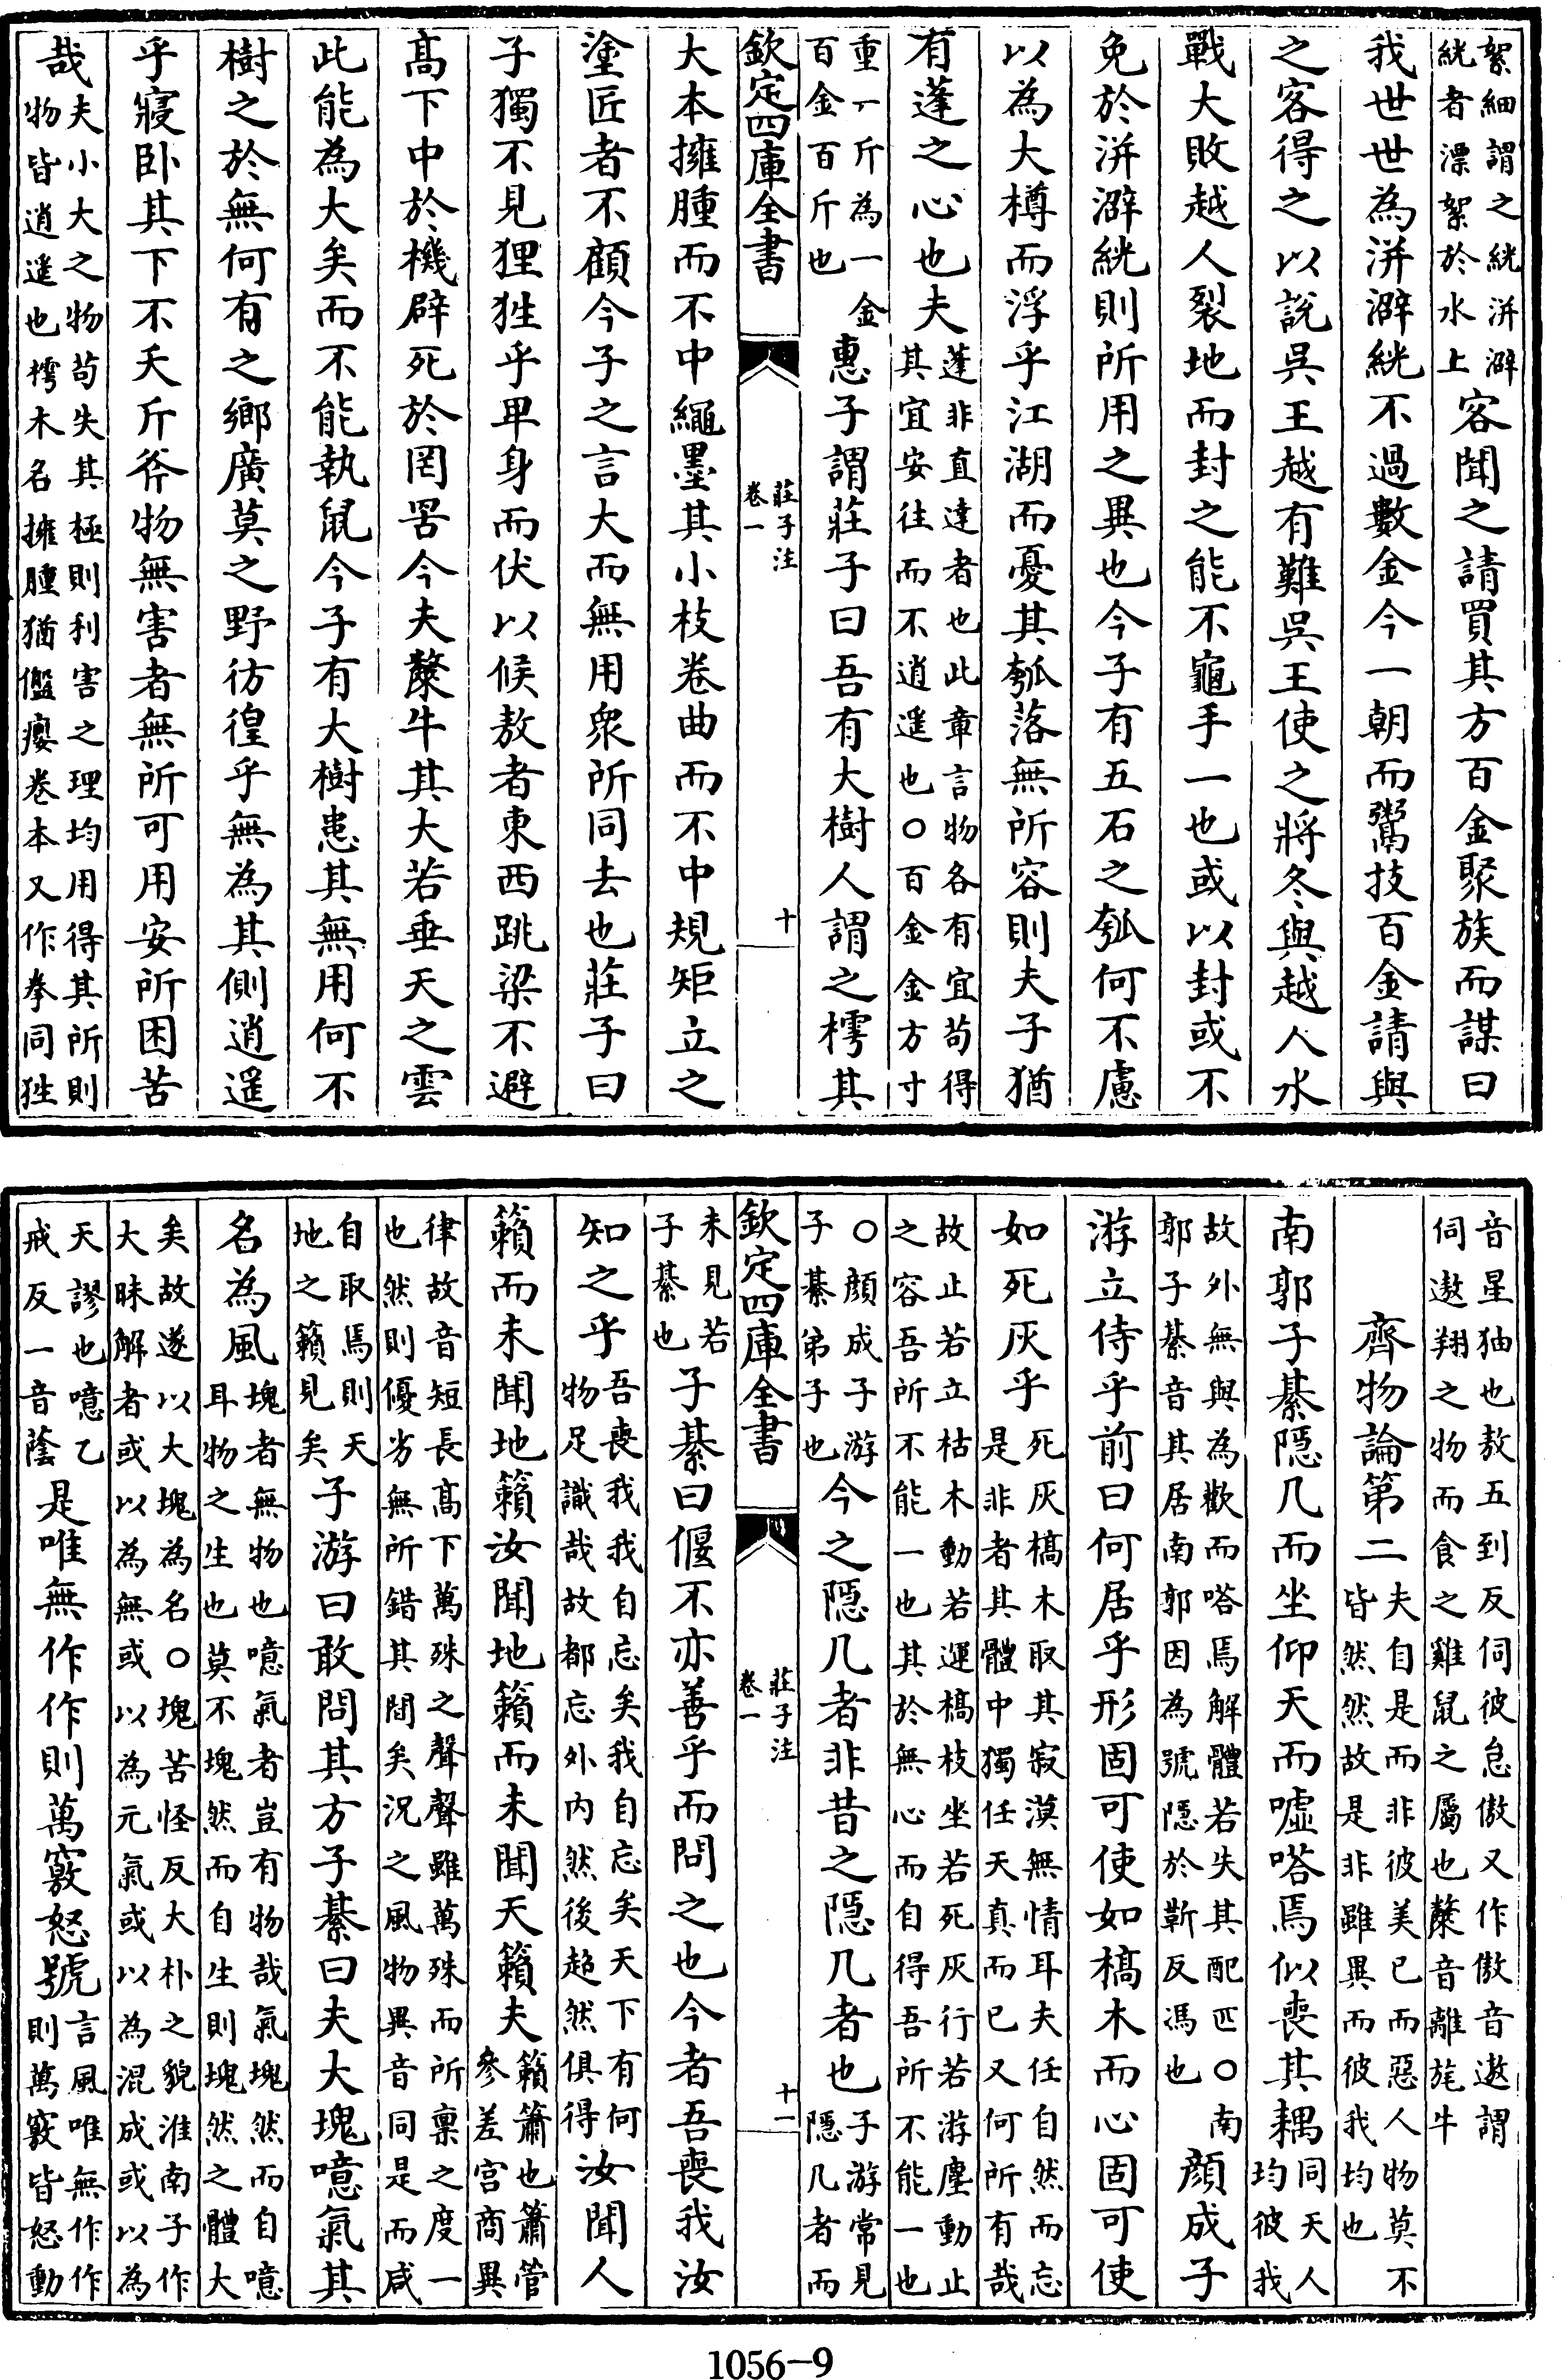 絮細謂之絖洴澼絖者漂絮於水上客聞之請買其方百金聚族而謀曰
我世世為洴澼絖不過數金今一朝而鬻技百金請與
之客得之以說吳王越有難吳王使之將冬與越人水
戰大敗越人裂地而封之能不龜手一也或以封或不
免於洴澼絖則所用之異也今子有五石之瓠何不慮
以為大樽而浮乎江湖而憂其瓠落無所容則夫子猶
有蓬之心也夫蓬非直達者也此章言物各有宜苟得其宜安往而不逍遥也○百金金方寸
重一斤為一金百金百斤也惠子謂莊子曰吾有大樹人謂之樗其
欽定四庫全書
莊子注
卷一
十
大本擁腫而不中繩墨其小枝卷曲而不中規矩立之
塗匠者不顧今子之言大而無用衆所同去也莊子曰
子獨不見狸狌乎卑身而伏以候敖者東西跳梁不避
髙下中於機辟死於罔罟今夫斄牛其大若垂天之雲
此能為大矣而不能執鼠今子有大樹患其無用何不
樹之於無何有之鄉廣莫之野彷徨乎無為其側逍遥
乎寢卧其下不夭斤斧物無害者無所可用安所困苦
哉夫小大之物苟失其極則利害之理均用得其所則物皆逍遥也樗木名擁腫猶儘癭卷本又作拳同狌
音星狖也敖五到反伺彼怠傲又作傲音遨謂伺遨翔之物而食之雞鼠之屬也斄音離旄牛
齊物論第二夫自是而非彼美已而惡人物莫不皆然然故是非雖異而彼我均也
南郭子綦隠几而坐仰天而噓嗒焉似喪其耦同天人均彼我
故外無與為歡而嗒焉解體若失其配匹○南郭子綦音其居南郭因為號隠於靳反馮也顔成子
游立侍乎前曰何居乎形固可使如槁木而心固可使
如死灰乎死灰槁木取其寂漠無情耳夫任自然而忘是非者其體中獨任天真而已又何所有哉
故止若立枯木動若運槁枝坐若死灰行若游塵動止之容吾所不能一也其於無心而自得吾所不能一也
○顔成子游子綦弟子也今之隠几者非昔之隠几者也子游常見隠几者而
欽定四庫全書
莊子注
卷一
十一
未見若子綦也子綦曰偃不亦善乎而問之也今者吾喪我汝
知之乎吾喪我我自忘矣我自忘矣天下有何物足識哉故都忘外内然後超然俱得汝聞人
籟而未聞地籟汝聞地籟而未聞天籟夫籟簫也簫管參差宫商異
律故音短長髙下萬殊之聲聲雖萬殊而所禀之度一也然則優劣無所錯其間矣況之風物異音同是而咸
自取焉則天地之籟見矣子游曰敢問其方子綦曰夫大塊噫氣其
名為風塊者無物也噫氣者豈有物哉氣塊然而自噫耳物之生也莫不塊然而自生則塊然之體大
矣故遂以大塊為名○塊苦怪反大朴之貌淮南子作大昧解者或以為無或以為元氣或以為混成或以為
天謬也噫乙戒反一音蔭是唯無作作則萬竅怒號言風唯無作作則萬竅皆怒動
1056-9